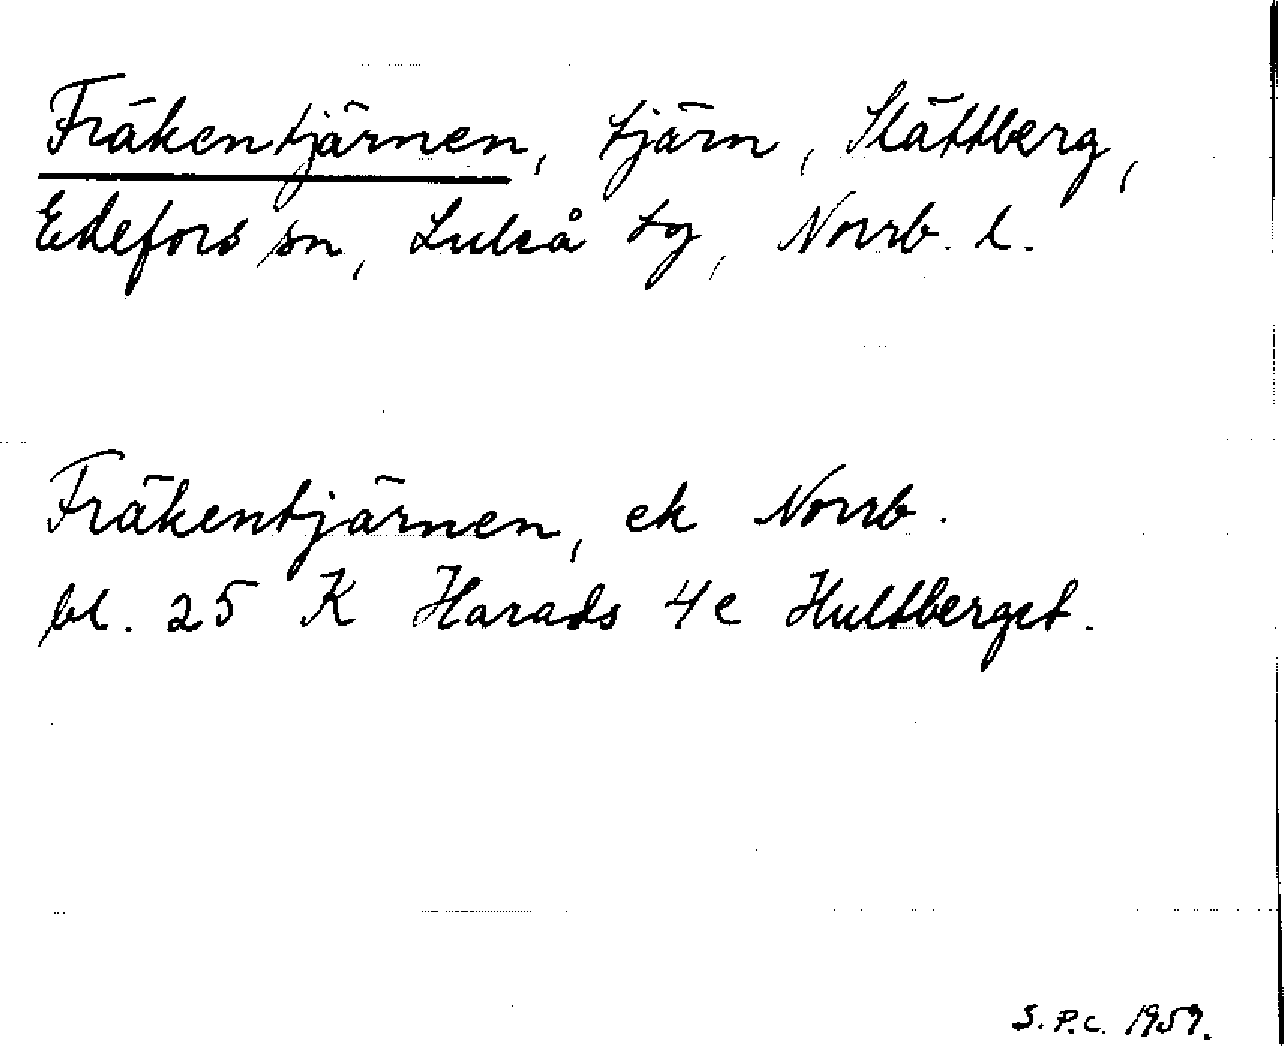 Fräkentjärnen, tjärn, Slättberg,
Edefors sn, Luleå tg, Norrb. l.
Fräkentjärnen, ek Norrb.
bl. 25 K Harads 4e Hultberget.
S.P.C. 1959.